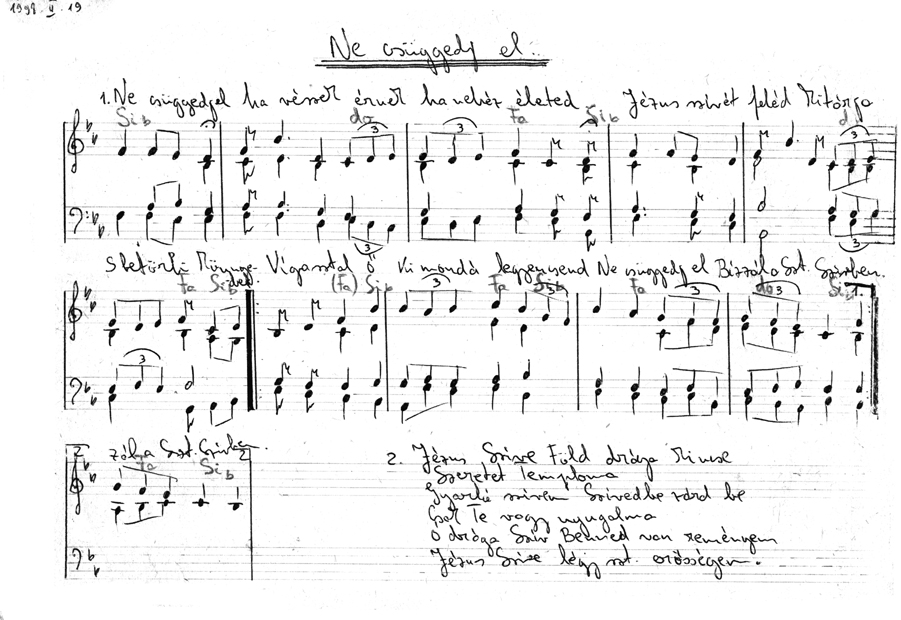 1998. V. 19
Ne csüggedj el..
1. Ne csüggedjel ha vészek érnek ha nehéz életed Jézus szívét feléd kitárja
Si b do Fa Si b d
3 3 3
3 3
S letörli könnye- Vigasztal ő ki mondá legszensend Ne csüggedj el Bízzál a Szt. Szívben.
ded
Fa Si b (Fa) Si b Fa Si b Fa do Si b 1.
3 3 3 3
3
2. zál a Szt. Szívben.
Fa Si b
2. Jézus Szíve Föld drága kincse
Szeretet temploma
Gyarló szívem Szívedbe zárd be
Csak Te vagy nyugalma
Ó drága Szív Benned van reményem
Jézus Szíve légy szt. erősségem.